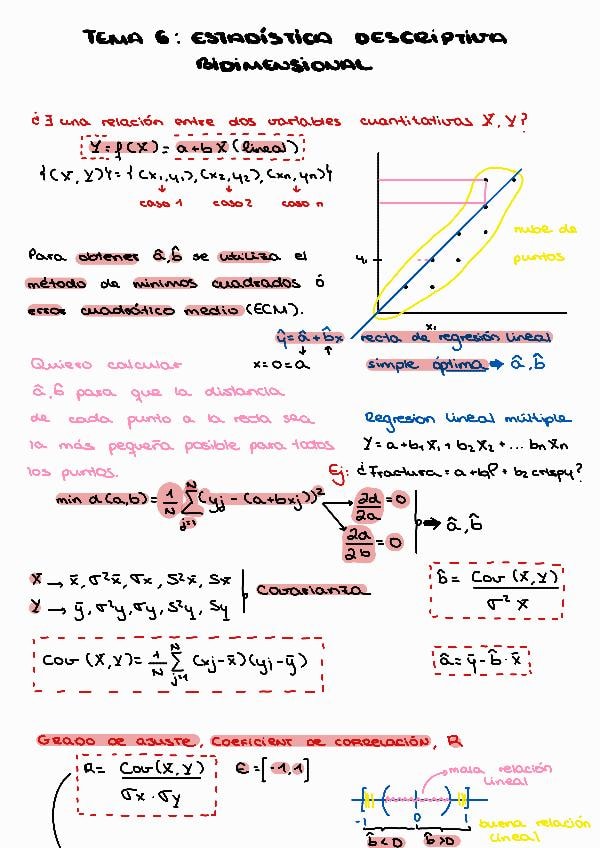 TEMA 6: ESTADÍSTICA DESCRIPTIVA
BIDIMENSIONAL
¿∃ una relación entre dos variables cuantitativas X, Y?
Y = f(X) = a+bX (lineal)
{(X,Y)} = {(x₁,y₁), (x₂,y₂), (xn,yn)}
caso 1 caso 2 caso n
nube de
puntos
y₁
x₁
Para obtener â, b̂ se utiliza el
método de mínimos cuadrados ó
error cuadrático medio (ECM).
ŷ = â + b̂x recta de regresión lineal
x=0=a simple óptima → â, b̂
Quiero calcular
â, b̂ para que la distancia
de cada punto a la recta sea
la más pequeña posible para todos
los puntos.
Regresion lineal múltiple
Y = a+b₁X₁ + b₂X₂ + ... bnXn
Ej: ¿Fractura = a+b₁P + b₂crispy?
min d(a,b) = 1/N Σ(j=1, N) (yj - (a+bxj))² → 2d/2a = 0
2d/2b = 0 → â, b̂
X → x̄, σ²x̄, σx, S²x, Sx
Y → ȳ, σ²y, σy, S²y, Sy
Covarianza
b̂ = Cov(X,Y) / σ²X
Cov(X,Y) = 1/N Σ(j=1, N) (xj - x̄)(yj - ȳ)
â = ȳ - b̂ · x̄
Grado de ajuste, Coeficient de correlación, R
R = Cov(X,Y) / σx · σy
∈ = [-1,1]
mala relación
lineal
-1 0 1
buena relación
lineal
b̂<0 b̂>0